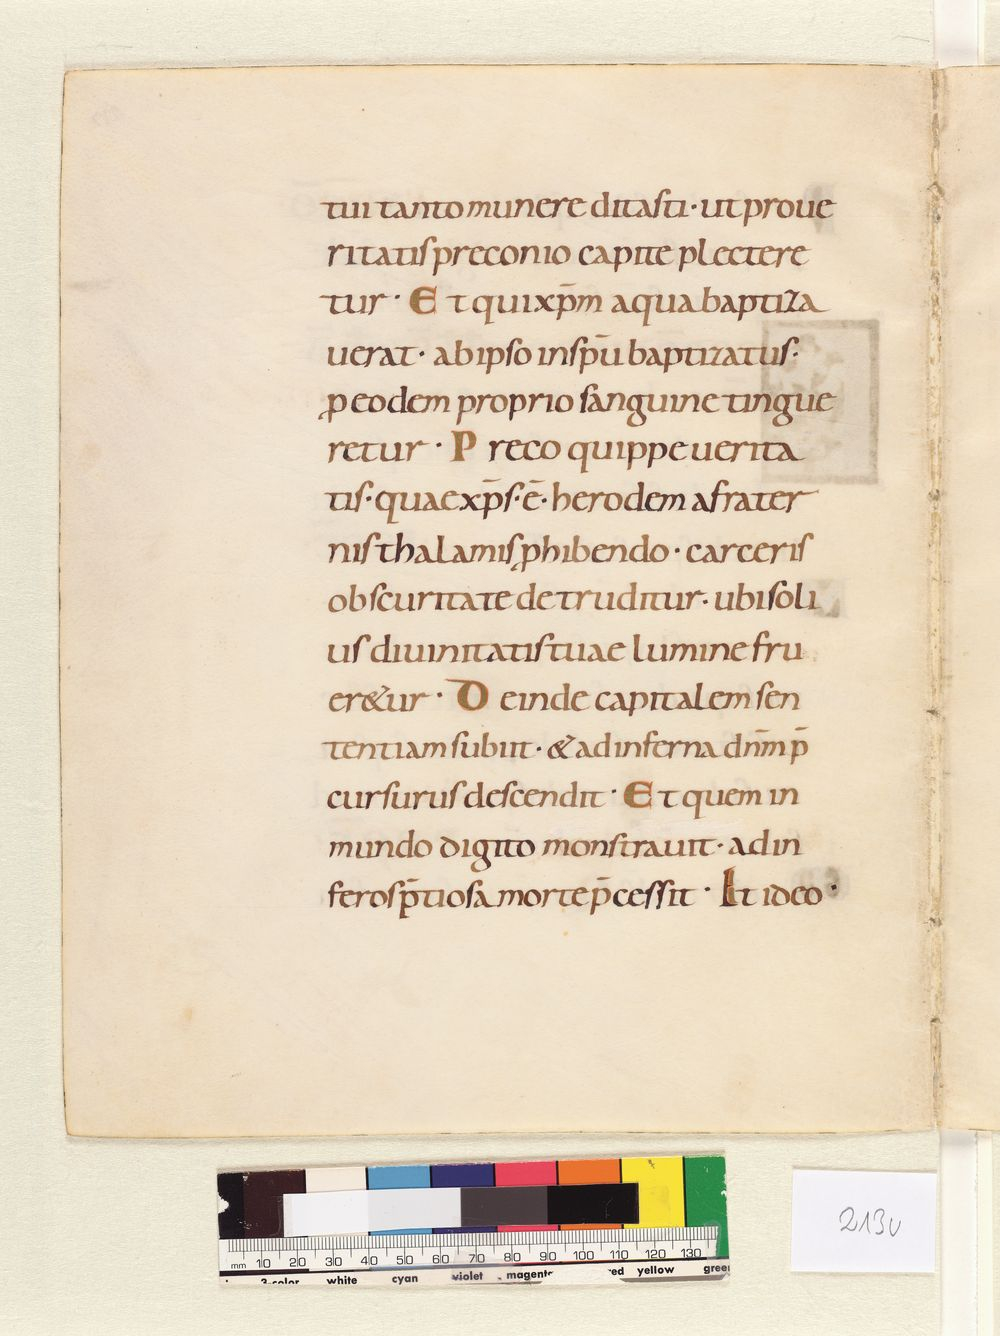 tui tanto munere ditasti · ut pro ue
ritatis preconio capite plectere
tur · Et qui xp̄m aqua baptiza
uerat · ab ipso in sp̄u baptizatus ·
ꝑ eodem proprio sanguine tingue
retur · Preco quippe uerita
tis · quae xp̄s · ē · herodem a frater
nis thalamis ꝓhibendo · carceris
obscuritate detruditur · ubi soli
us diuinitatis tuae lumine fru
er&ur · Deinde capitalem sen
tentiam subiit · & ad inferna dn̄m p̄
cursurus descendit · Et quem in
mundo digito monstrauit · ad in
feros p̄tiosa morte p̄cessit · Et ideo ·
mm 10 20 30 40 50 60 70 80 90 100 110 120 130
3-color white cyan violet magenta red yellow green
213v